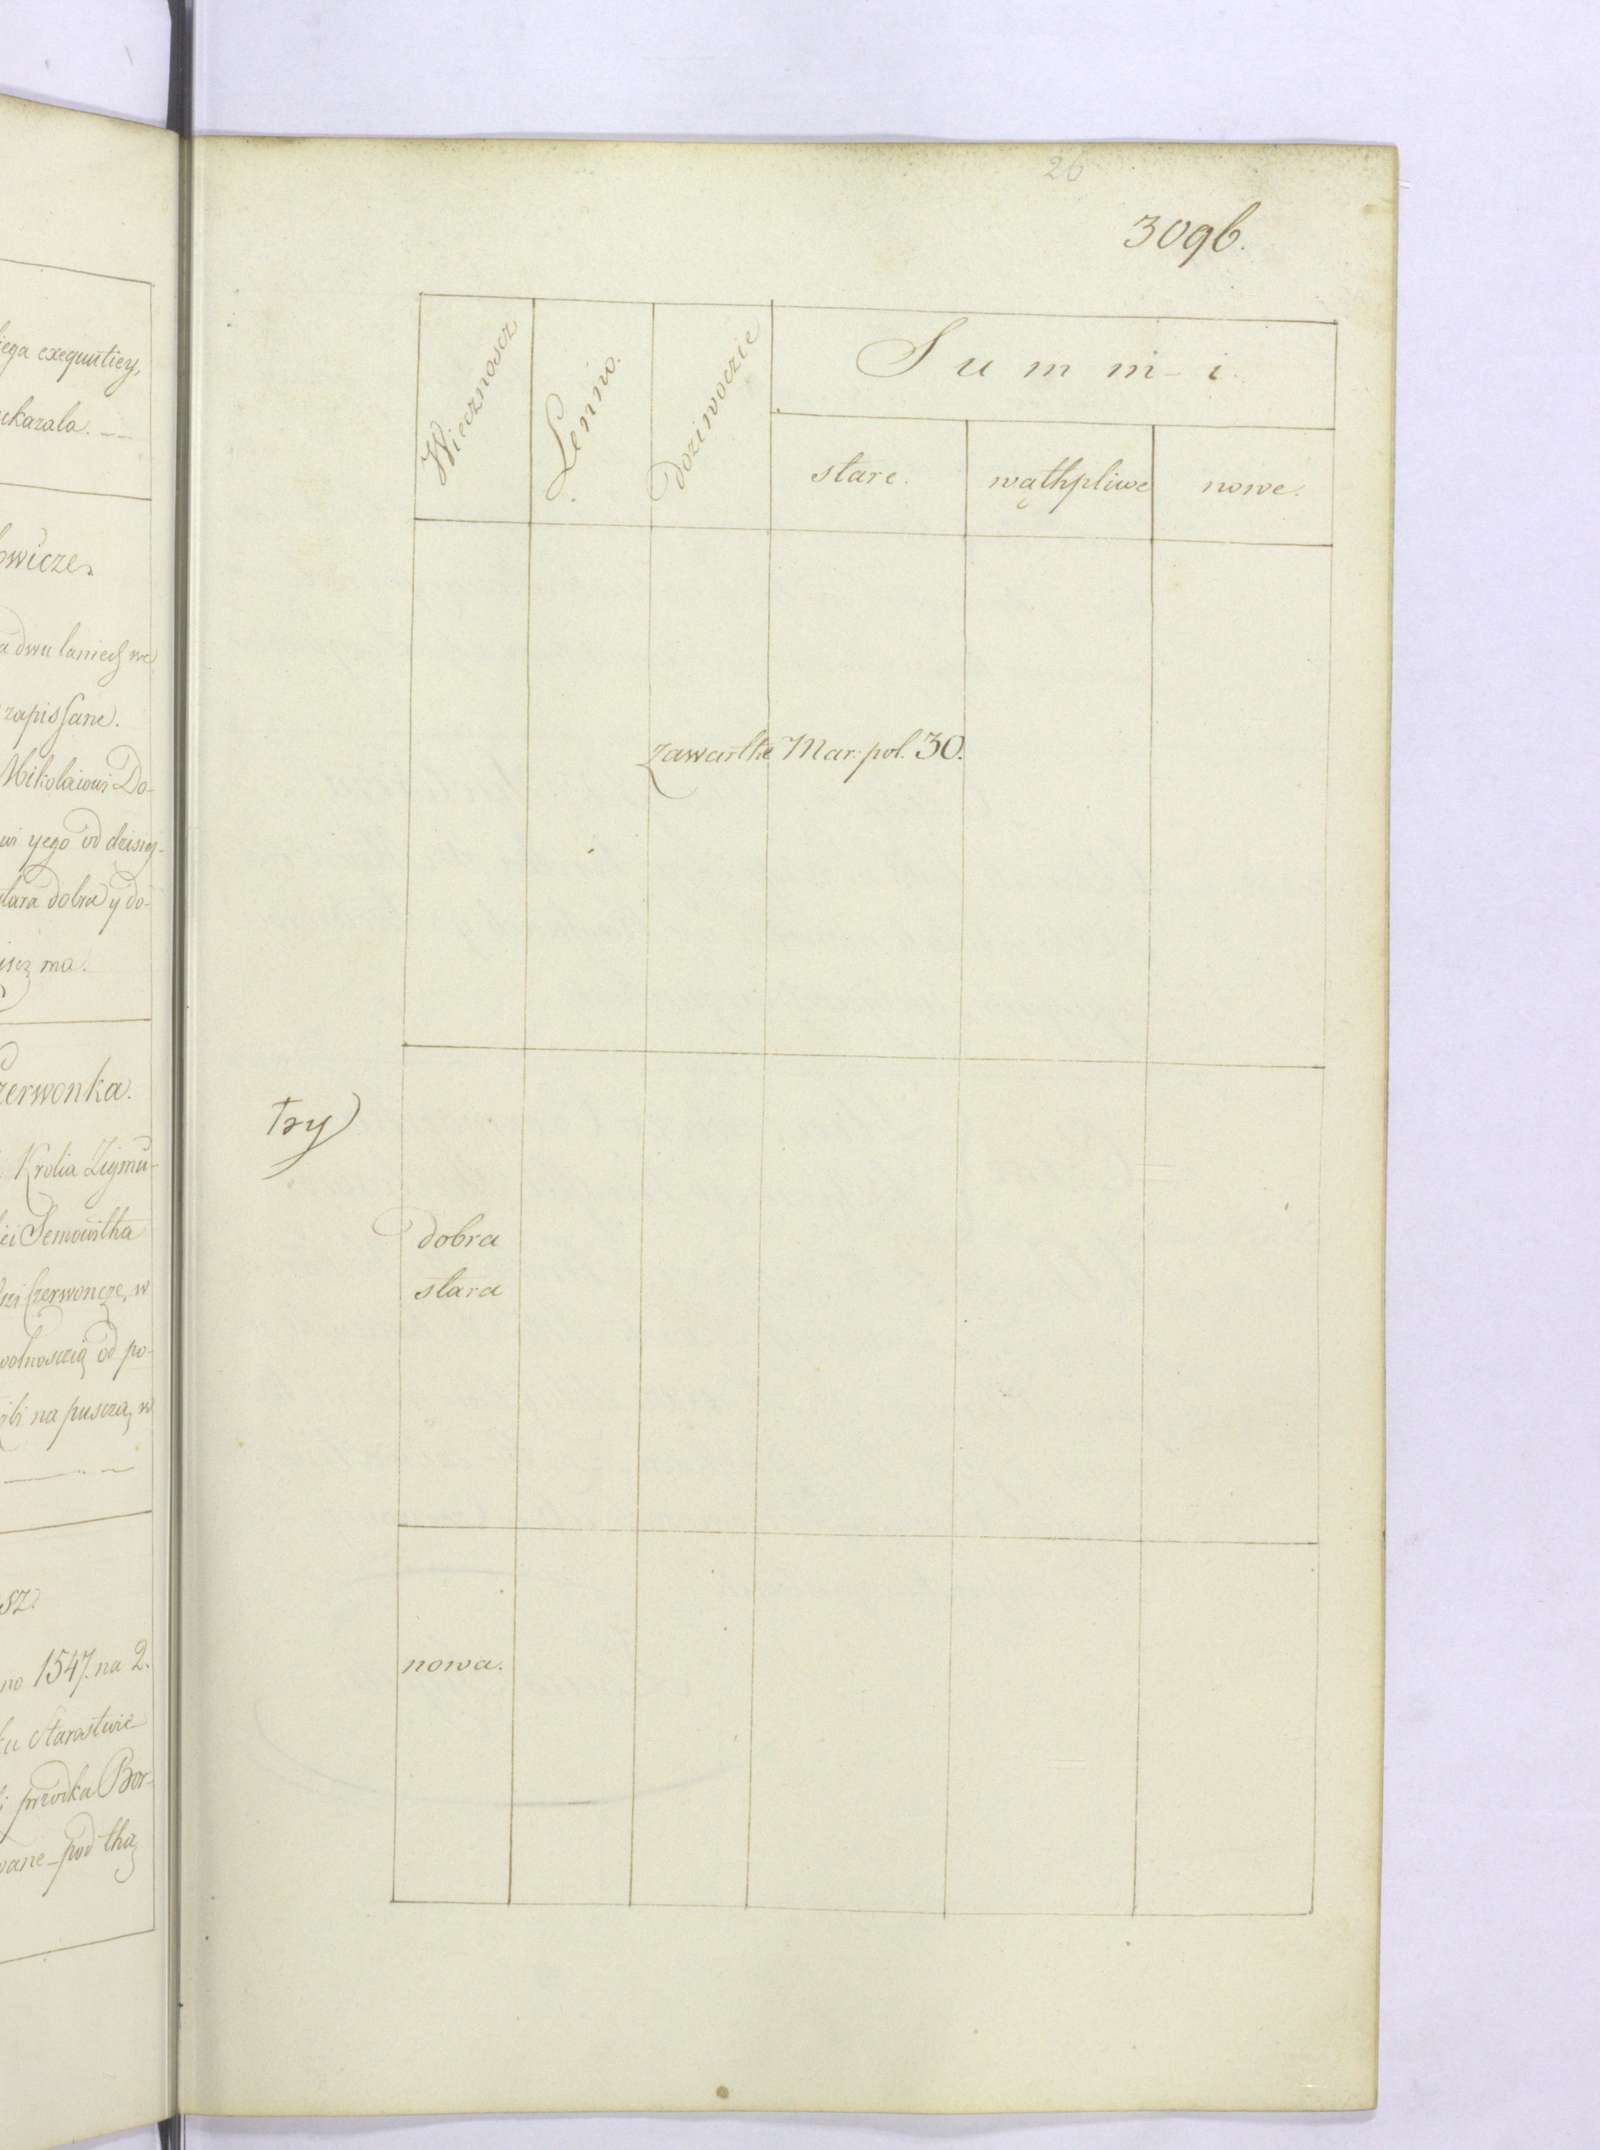 iega exequutiey,
ukazala. —
owicze.
a dwu laniech we
zapissane.
Mikolaiowi Do-
wi yego od dzisiey-
stara dobra y do-
isz ma.
Czerwonka.
Krolia Zigmu-
iei Semowitha
Czerwoncze, w
wolnoscią od po-
ibi na puscza, w
sz.
no 1547. na 2.
tu Starostwie
i przodka Bor-
wane pod thą
26
309b.
Wiecznoscz
Lenno.
Doziwoczie
Summi.
stare.
wąthpliwe
nowe.
zawartha Mar. pol. 30.
Try
dobra
stara
nowa.